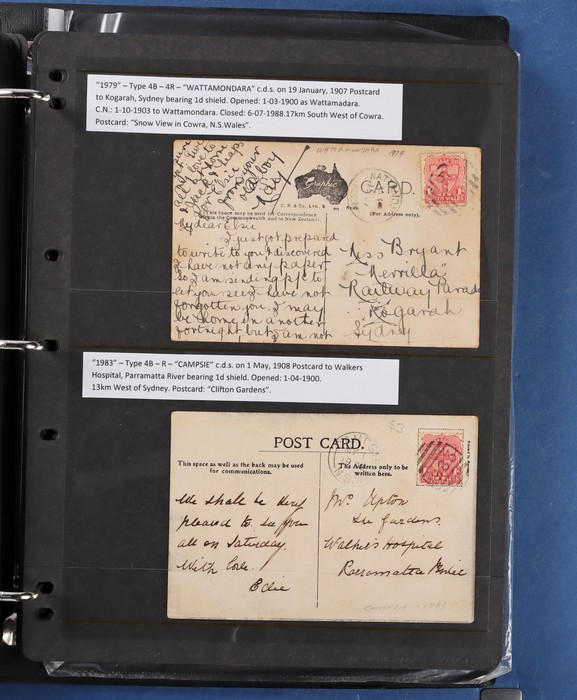 "1979" – Type 4B – 4R – "WATTAMONDARA" c.d.s. on 19 January, 1907 Postcard
to Kogarah, Sydney bearing 1d shield. Opened: 1-03-1900 as Wattamadara.
C.N.: 1-10-1903 to Wattamondara. Closed: 6-07-1988.17km South West of Cowra.
Postcard: "Snow View in Cowra, N.S.Wales".
WATTAMONDARA 1979
Give
my love to
all at home
Jack & Snaps
from your
old boy
Graphic
CARD.
(For Address only).
This Space may be used for Correspondence
within the Commonwealth and to New Zealand.
My dear Elsie
I just got prepared
to write to you & discovered
I have not any paper
so I am sending p/c to
let you see I have not
forgotten you. I may
be home in another
fortnight but I am not
Miss Bryant
"Merrilla"
Railway Parade
Kogarah
Sydney
"1983" – Type 4B – R – "CAMPSIE" c.d.s. on 1 May, 1908 Postcard to Walkers
Hospital, Parramatta River bearing 1d shield. Opened: 1-04-1900.
13km West of Sydney. Postcard: "Clifton Gardens".
$3
POST CARD.
This space as well as the back may be used
for communications.
The Address only to be
written here.
We shall be very
pleased to see you
all on Saturday.
With love.
Edie
Mr. Upton
The Gardens.
Walker's Hospital
Parramatta River
CAMPSIE 1983